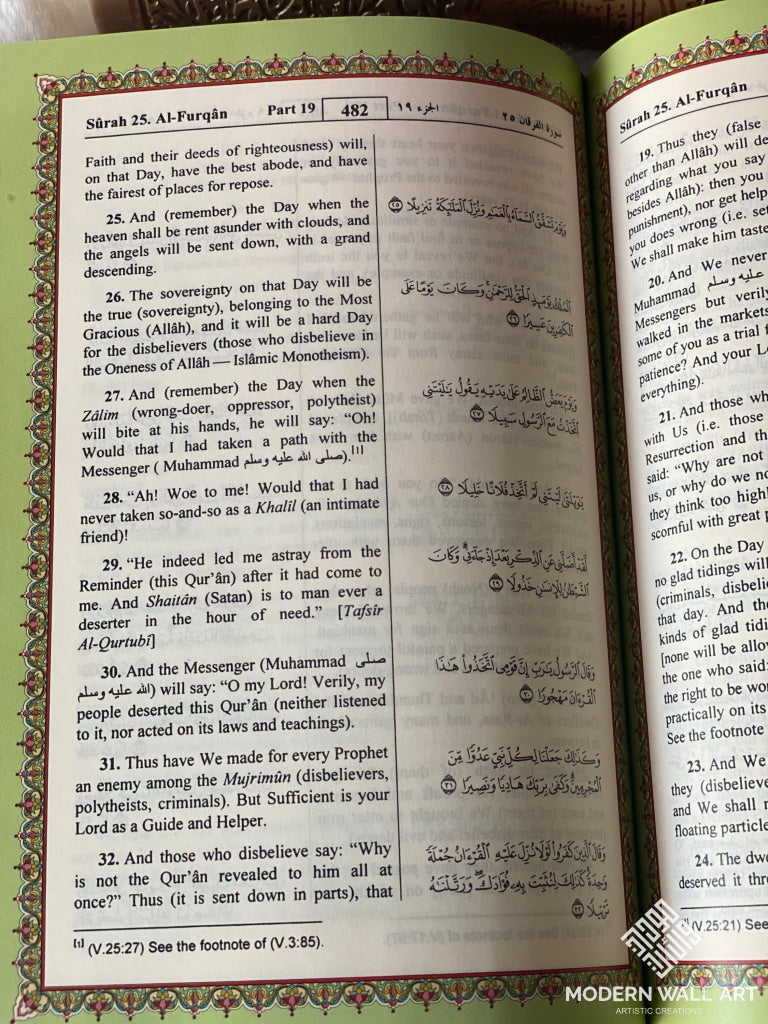 Sûrah 25. Al-Furqân Part 19 482 الجزء ١٩ سورة الفرقان ٢٥
Faith and their deeds of righteousness) will,
on that Day, have the best abode, and have
the fairest of places for repose.
25. And (remember) the Day when the
heaven shall be rent asunder with clouds, and
the angels will be sent down, with a grand
descending.
26. The sovereignty on that Day will be
the true (sovereignty), belonging to the Most
Gracious (Allâh), and it will be a hard Day
for the disbelievers (those who disbelieve in
the Oneness of Allâh — Islâmic Monotheism).
27. And (remember) the Day when the
Zâlim (wrong-doer, oppressor, polytheist)
will bite at his hands, he will say: “Oh!
Would that I had taken a path with the
Messenger ( Muhammad صلى الله عليه وسلم).[1]
28. “Ah! Woe to me! Would that I had
never taken so-and-so as a Khalil (an intimate
friend)!
29. “He indeed led me astray from the
Reminder (this Qur’ân) after it had come to
me. And Shaitân (Satan) is to man ever a
deserter in the hour of need.” [Tafsîr
Al-Qurtubî]
30. And the Messenger (Muhammad صلى
الله عليه وسلم) will say: “O my Lord! Verily, my
people deserted this Qur’ân (neither listened
to it, nor acted on its laws and teachings).
31. Thus have We made for every Prophet
an enemy among the Mujrimûn (disbelievers,
polytheists, criminals). But Sufficient is your
Lord as a Guide and Helper.
32. And those who disbelieve say: “Why
is not the Qur’ân revealed to him all at
once?” Thus (it is sent down in parts), that
[1] (V.25:27) See the footnote of (V.3:85).
وَيَوْمَ تَشَقَّقُ ٱلسَّمَآءُ بِٱلْغَمَٰمِ وَنُزِّلَ ٱلْمَلَٰٓئِكَةُ تَنزِيلًا ٢٥
ٱلْمُلْكُ يَوْمَئِذٍ ٱلْحَقُّ لِلرَّحْمَٰنِ وَكَانَ يَوْمًا عَلَى
ٱلْكَٰفِرِينَ عَسِيرًا ٢٦
وَيَوْمَ يَعَضُّ ٱلظَّالِمُ عَلَىٰ يَدَيْهِ يَقُولُ يَٰلَيْتَنِى
ٱتَّخَذْتُ مَعَ ٱلرَّسُولِ سَبِيلًا ٢٧
يَٰوَيْلَتَىٰ لَيْتَنِى لَمْ أَتَّخِذْ فُلَانًا خَلِيلًا ٢٨
لَّقَدْ أَضَلَّنِى عَنِ ٱلذِّكْرِ بَعْدَ إِذْ جَآءَنِى وَكَانَ
ٱلشَّيْطَٰنُ لِلْإِنسَٰنِ خَذُولًا ٢٩
وَقَالَ ٱلرَّسُولُ يَٰرَبِّ إِنَّ قَوْمِى ٱتَّخَذُوا۟ هَٰذَا
ٱلْقُرْءَانَ مَهْجُورًا ٣٠
وَكَذَٰلِكَ جَعَلْنَا لِكُلِّ نَبِىٍّ عَدُوًّا مِّنَ
ٱلْمُجْرِمِينَ وَكَفَىٰ بِرَبِّكَ هَادِيًا وَنَصِيرًا ٣١
وَقَالَ ٱلَّذِينَ كَفَرُوا۟ لَوْلَا نُزِّلَ عَلَيْهِ ٱلْقُرْءَانُ جُمْلَةً
وَٰحِدَةً كَذَٰلِكَ لِنُثَبِّتَ بِهِۦ فُؤَادَكَ وَرَتَّلْنَٰهُ
تَرْتِيلًا ٣٢
Sûrah 25. Al-Furqân
19. Thus they (false
other than Allâh) will de
regarding what you say
besides Allâh): then you
punishment), nor get help
you does wrong (i.e. set
We shall make him taste
20. And We never
Muhammad عليه وسلم
Messengers but verily
walked in the markets
some of you as a trial f
patience? And your Lo
everything).
21. And those wh
with Us (i.e. those
Resurrection and th
said: “Why are not
us, or why do we no
they think too highl
scornful with great p
22. On the Day
no glad tidings will
(criminals, disbelie
that day. And the
kinds of glad tidi
[none will be allow
the one who said:
the right to be wor
practically on its
See the footnote
23. And We
they (disbelieve
and We shall m
floating particle
24. The dwe
deserved it thro
(V.25:21) See
MODERN WALL ART
ARTISTIC CREATIONS